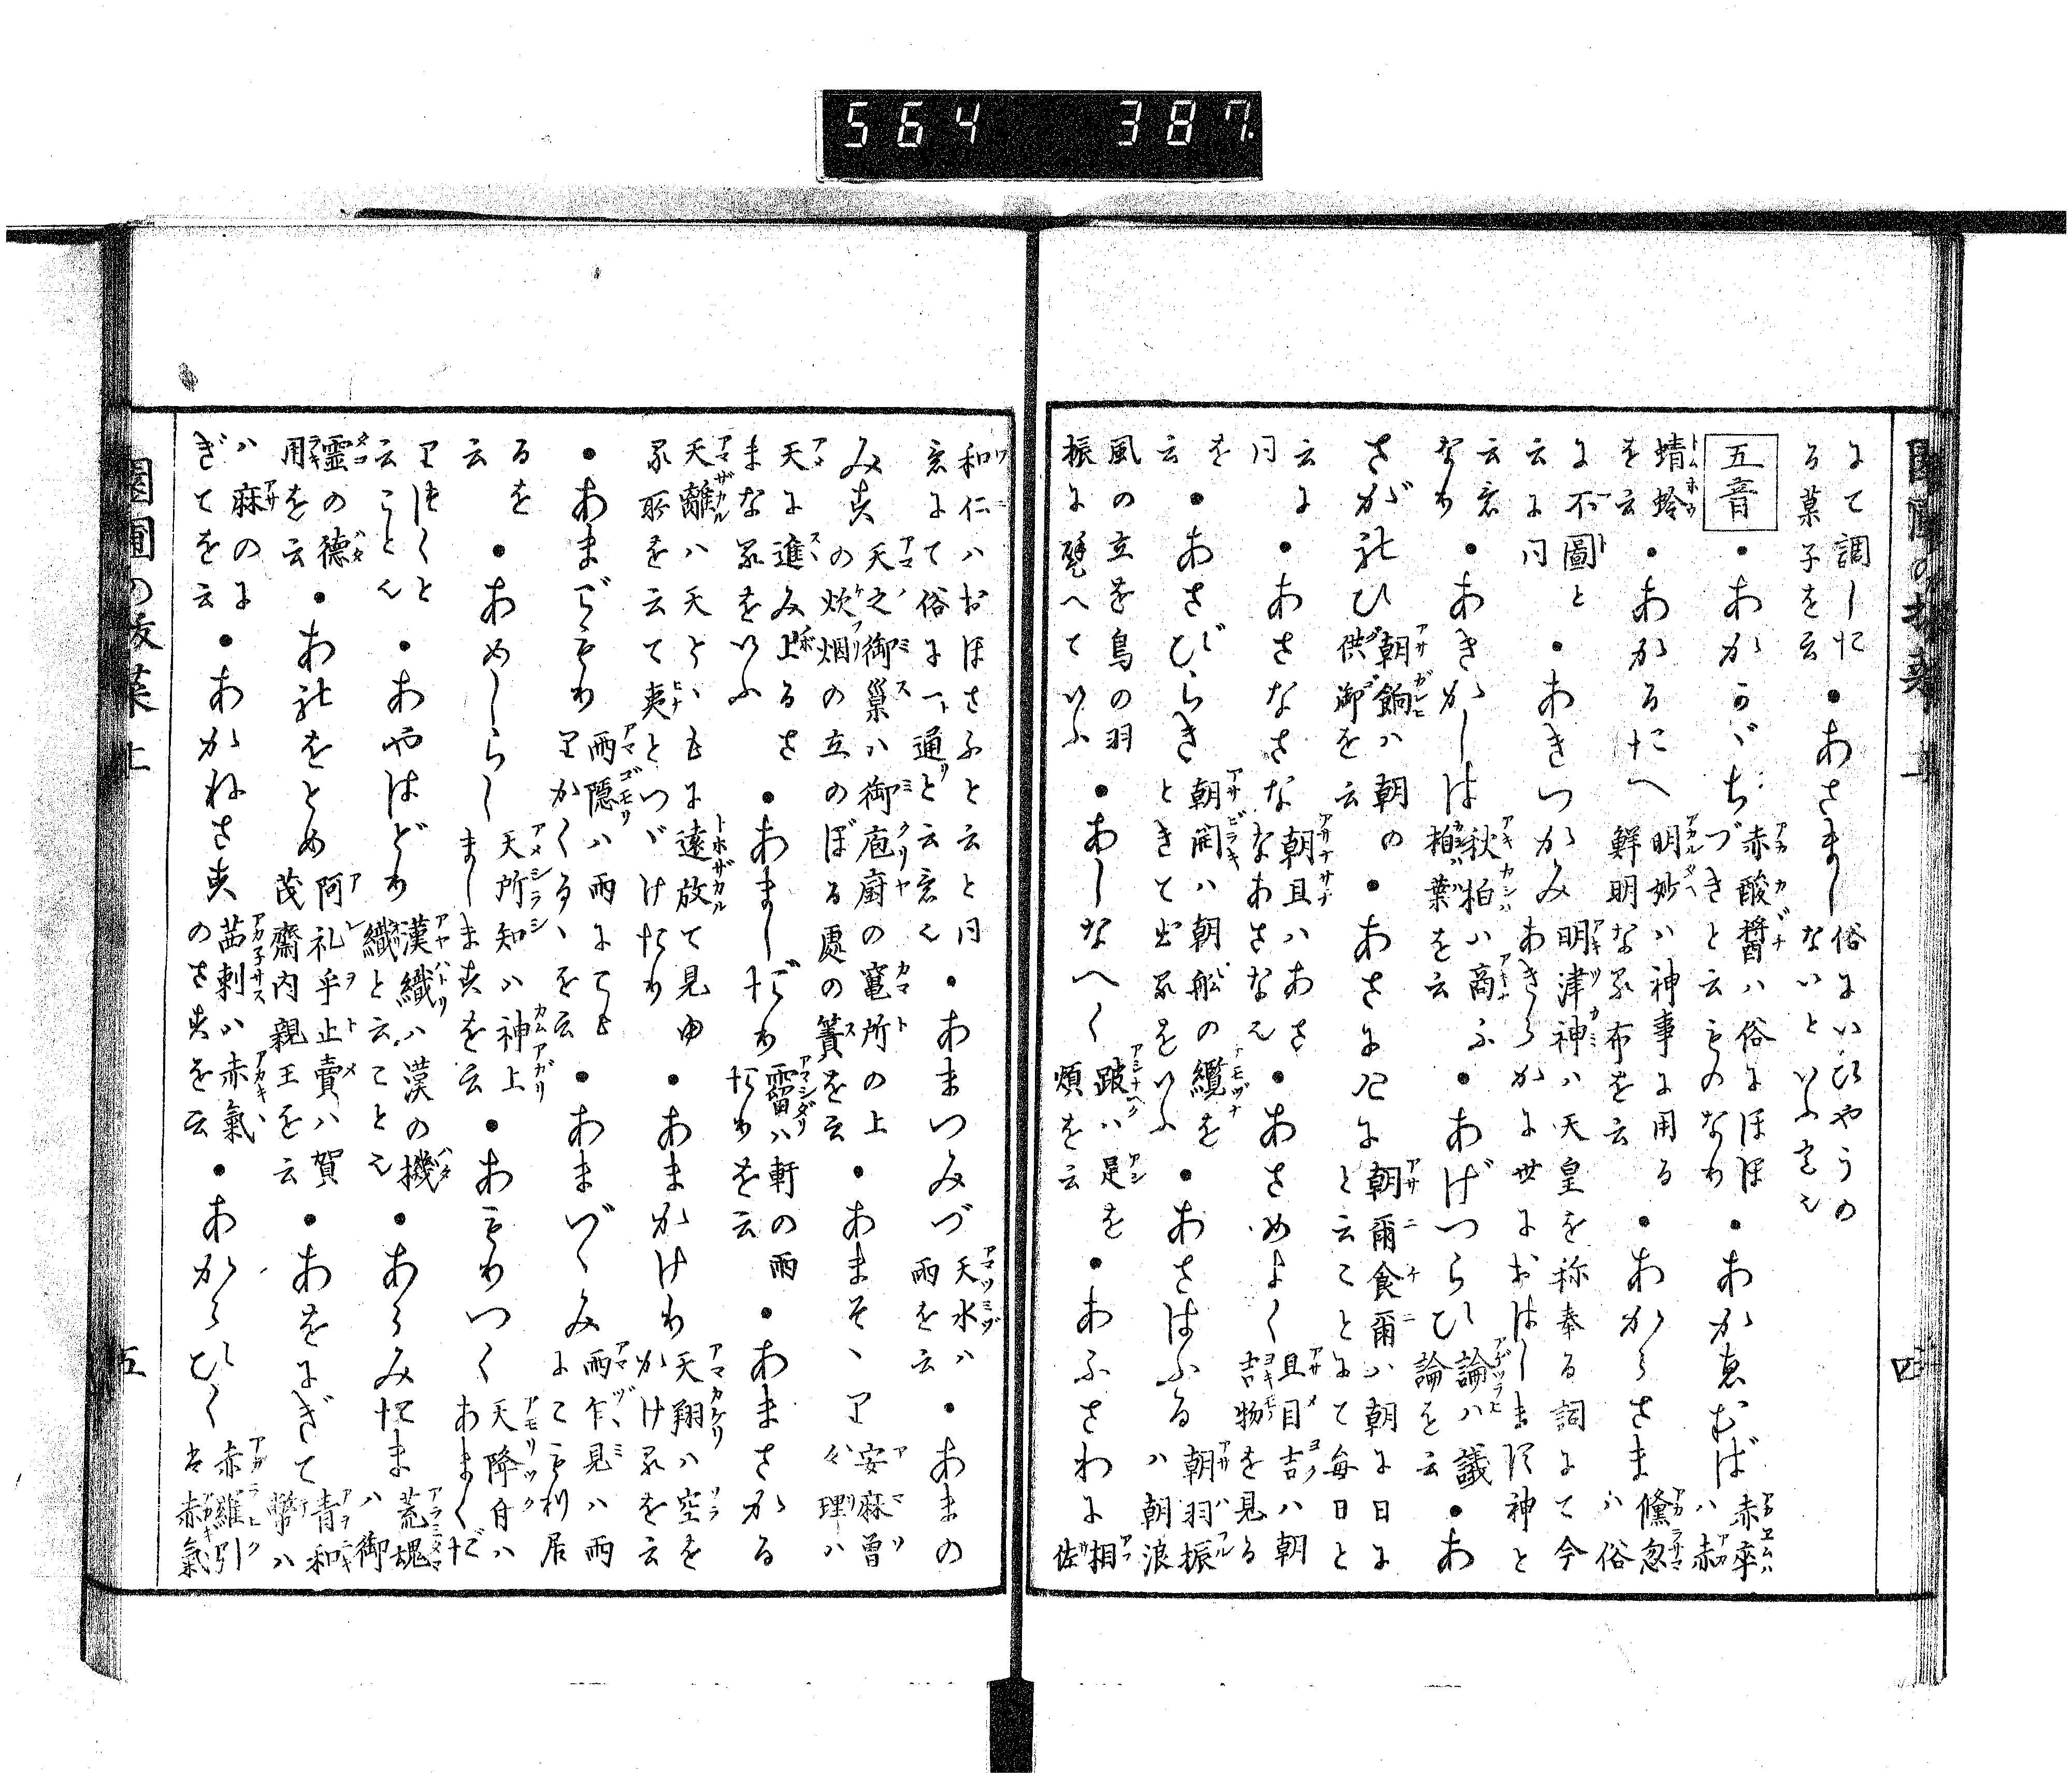 564 387
にて調したる菓子を云 ・あさまし 俗にいひやうのないといふ意也
五音 ・あかゞち 赤酸醤ハ俗にほほづきと云ものなり ・あかゑむば 赤卒ハ赤
蜻蛉を云 ・あかるたへ 明妙ハ神事に用る鮮明なる布を云 ・あからさま 儵忽ハ俗
に不圖と云に同 ・あきつかみ 明津神ハ天皇を称奉る詞にて今あきらかに世におはします神と
云意なり ・あきかしは 秋柏ハ商ふ柏葉を云 ・あげつらひ 論ハ議論を云 ・あ
さがれひ 朝餉ハ朝の供御を云 ・あさにけに 朝爾食爾ハ朝に日にと云ことにて毎日と
云に同 ・あさなさな 朝旦ハあさなあさな也 ・あさめよく 旦目吉ハ朝吉物を見る
を云 ・あさびらき 朝開ハ朝舩の纜をときて出るをいふ ・あさはふる 朝羽振ハ朝浪
風の立を鳥の羽振に譬へていふ ・あしなへく 跛ハ足を煩を云 ・あふさわに 相佐
和仁ハおほさふと云と同意にて俗に一通と云意也 ・あまつみづ 天水ハ雨を云 ・あまの
みす 天之御巢ハ御庖厨の竈所の上の炊烟の立のぼる處の簀を云 ・あまそゝり 安麻曽々理ハ
天に進み上るさまなるをいふ ・あましだり 霤ハ軒の雨たりを云 ・あまさかる
天離ハ天といもに遠放て見ゆる所を云て夷とつゞけたり ・あまかけり 天翔ハ空をかけるを云
・あまごもり 雨隠ハ雨にてもりかくるゝを云 ・あまづゝみ 雨乍見ハ雨にてもり居
るを云 ・あめしらし 天所知ハ神上ましますを云 ・あもりつく 天降自ハあまくだ
りつくと云こと也 ・あやはどり 漢織ハ漢の機織と云ことを ・あらみたま 荒魂ハ御
霊の徳用を云 ・あれをとめ 阿礼乎止賣ハ賀茂齋内親王を云 ・あをにぎて 青和幣ハ
ハ麻のにぎてを云 ・あかねさす 茜刺ハ赤氣のさすを云 ・あからひく 赤羅引も赤氣
上 四
上 五